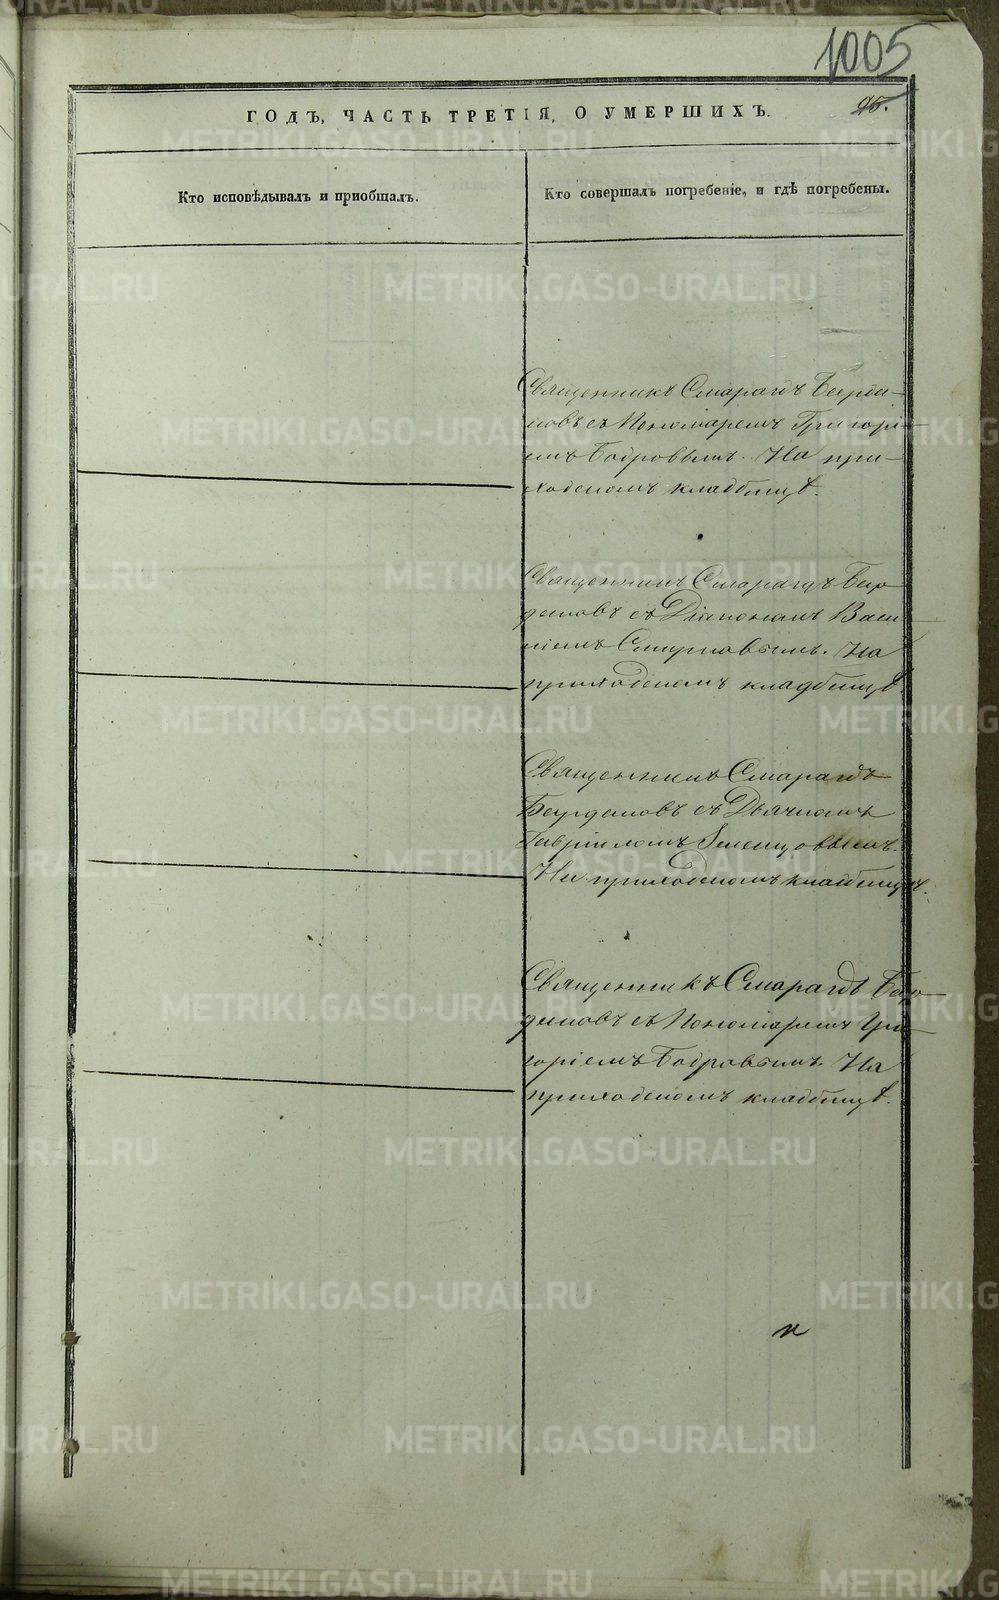 1005
95.
ГОДЪ, ЧАСТЬ ТРЕТІЯ, О УМЕРШИХЪ.
Кто исповѣдывалъ и пріобщалъ.
Кто совершалъ погребеніе, и гдѣ погребены.
Священникъ Смарагдъ Бирде-
новъ съ Пономаремъ Григорі-
емъ Бобровымъ. На при-
ходскомъ кладбищѣ.
Священникъ Смарагдъ Бир-
деновъ съ Діакономъ Васи-
ліемъ Смирновымъ. На
приходскомъ кладбищѣ.
Священникъ Смарагдъ
съ Дьячкомъ
Гавріиломъ
На приходскомъ кладбищѣ.
Священникъ Смарагдъ Бир-
деновъ съ Пономаремъ Гри-
горіемъ Бобровымъ. На
приходскомъ кладбищѣ.
METRIKI.GASO-URAL.RU